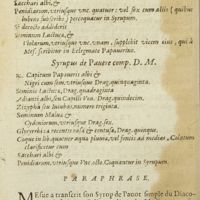 Sacchari albi, &
Penidiarum, utriusque unc. quatuor: vel sex cum aliis (quibus
lubens subscribo) percoquatur in Syrupum.
Et decocto adderet
Seminum Lactucæ, &
Violarum, utriusque unc. unam, supplebit vicem eius, qui à
Mes. scribitur in Eclegmate Papaverino.
Syrupus de Pauore comp. D. M.
℞. Capitum Papaveris albi &
Nigri cum sem. utriusque Drag. quinquaginta.
Seminis Lactucæ, Drag. quadraginta
Adianti albi, seu Capilli Ven. Drag. quindecim.
Zizypha seu Iuiubas numero triginta.
Seminum Malvæ &
Cydoniorum, utriusque Drag. sex.
Glycyrrhizæ recentis rasæ & contusæ, Drag. quinque.
Coque in lib. quatuor aquæ pluviæ, vel font. ad medias. Colatum
clarificetur cum
Sacchari albi &
Penidiarum, utriusque Unc. octo. Coquantur in Syrupum.
PARAPHRASE.
Mesue a transcrit son Syrop de Pavot simple du Diaco-